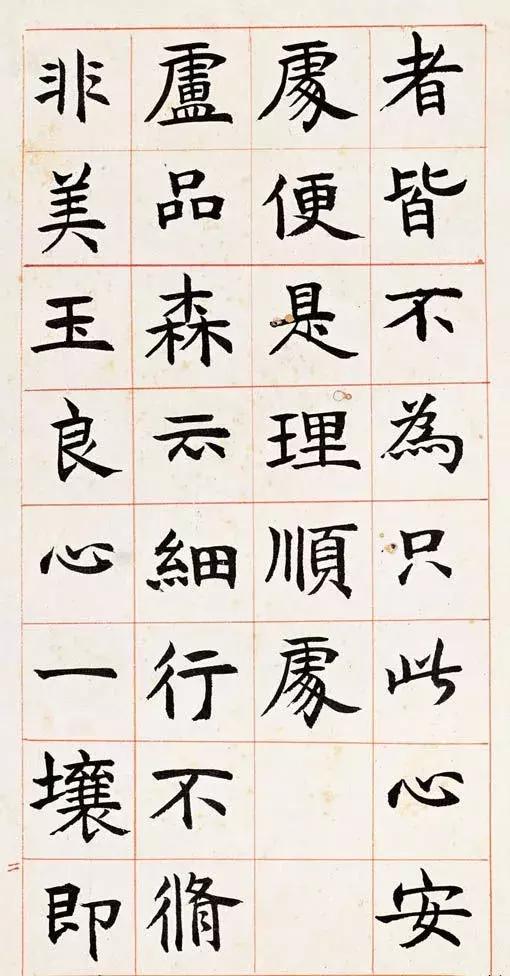 者皆不為只此心安
處便是理順處
盧品森云細行不脩
非美玉良心一壤即